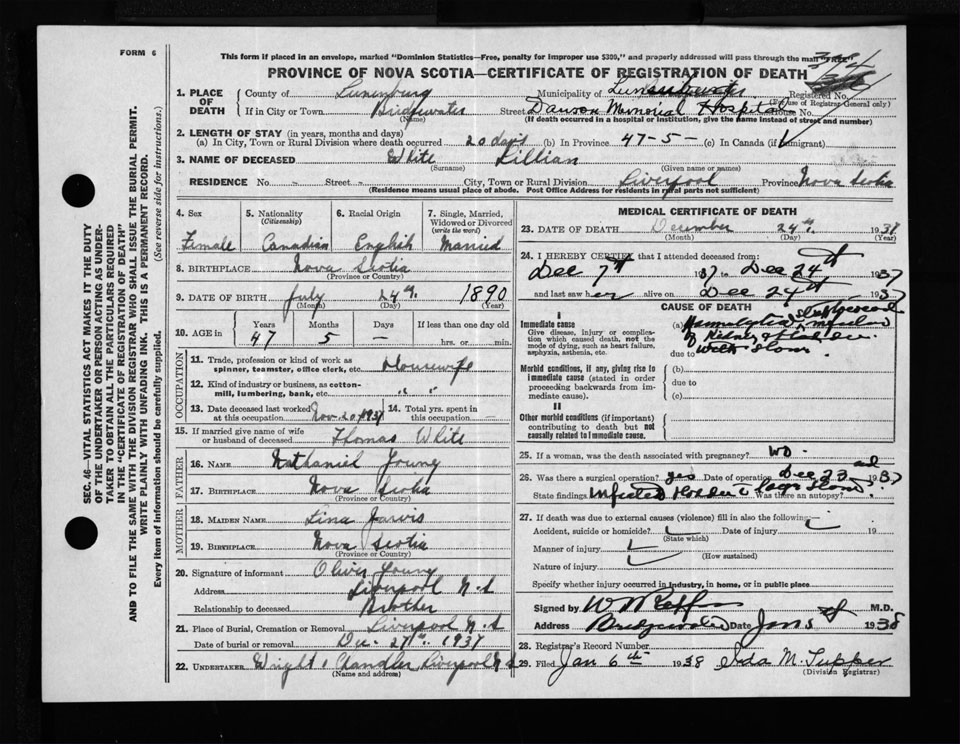 FORM 6
This form if placed in an envelope, marked "Dominion Statistics—Free, penalty for improper use $300," and properly addressed will pass through the mail "FREE"
PROVINCE OF NOVA SCOTIA—CERTIFICATE OF REGISTRATION OF DEATH
1. PLACE OF DEATH
County of Lunenburg Municipality of Registered No.
(For use of Registrar General only)
If in City or Town Bridgewater Street Dawson Memorial Hospital House No.
(Name) (If death occurred in a hospital or institution, give the name instead of street and number)
2. LENGTH OF STAY (in years, months and days)
(a) In City, Town or Rural Division where death occurred 20 days (b) In Province 47-5- (c) In Canada (if immigrant)
3. NAME OF DECEASED White Lillian
(Surname) (Given name or names)
RESIDENCE No. – Street – City, Town or Rural Division Liverpool Province Nova Scotia
(Residence means usual place of abode. Post Office Address for residents in rural parts not sufficient)
SEC. 46—VITAL STATISTICS ACT MAKES IT THE DUTY
OF THE UNDERTAKER OR PERSON ACTING AS UNDER-
TAKER TO OBTAIN ALL THE PARTICULARS REQUIRED
IN THE "CERTIFICATE OF REGISTRATION OF DEATH"
AND TO FILE THE SAME WITH THE DIVISION REGISTRAR WHO SHALL ISSUE THE BURIAL PERMIT.
WRITE PLAINLY WITH UNFADING INK. THIS IS A PERMANENT RECORD.
Every item of information should be carefully supplied. (See reverse side for instructions.)
4. Sex 5. Nationality 6. Racial Origin 7. Single, Married,
(Citizenship) Widowed or Divorced
(write the word)
Female Canadian English Married
8. BIRTHPLACE Nova Scotia
(Province or Country)
9. DATE OF BIRTH July 24th. 1890
(Month) (Day) (Year)
10. AGE in Years Months Days If less than one day old
47 5 – hrs. or min.
OCCUPATION
11. Trade, profession or kind of work as
spinner, teamster, office clerk, etc. Housewife
12. Kind of industry or business, as cotton-
mill, lumbering, bank, etc. " "
13. Date deceased last worked at this occupation Nov. 20, 1937 14. Total yrs. spent in this occupation
15. If married give name of wife
or husband of deceased Thomas White
FATHER
16. NAME Nathaniel Young
17. BIRTHPLACE Nova Scotia
(Province or Country)
MOTHER
18. MAIDEN NAME Lina Jarvis
19. BIRTHPLACE Nova Scotia
(Province or Country)
20. Signature of informant Oliver Young
Address Liverpool N.S
Relationship to deceased Brother
21. Place of Burial, Cremation or Removal Liverpool N.S
Date of burial or removal Dec. 27th. 1937
22. UNDERTAKER Wright & Chandler, Liverpool N.S
(Name and address)
MEDICAL CERTIFICATE OF DEATH
23. DATE OF DEATH December 24th. 1937
(Month) (Day) (Year)
24. I HEREBY CERTIFY that I attended deceased from:
Dec 7th 1937 to Dec 24th 1937
and last saw her alive on Dec 24th 1937
CAUSE OF DEATH
I
Immediate cause
Give disease, injury or complica-
tion which caused death, not the
mode of dying, such as heart failure,
asphyxia, asthenia, etc.
(a)
of Kidney
due to with stones
Morbid conditions, if any, giving rise to
immediate cause (stated in order
proceeding backwards from im-
mediate cause).
(b)
due to
(c)
II
Other morbid conditions (if important)
contributing to death but not
causally related to immediate cause.
25. If a woman, was the death associated with pregnancy? no.
26. Was there a surgical operation? yes Date of operation Dec 23rd 1937
State findings Infected Was there an autopsy?
27. If death was due to external causes (violence) fill in also the following:—
Accident, suicide or homicide? Date of injury 19
(State which)
Manner of injury
(How sustained)
Nature of injury
Specify whether injury occurred in industry, in home, or in public place
Signed by M.D.
Address Bridgewater Date Jan 5 1938
28. Registrar's Record Number
29. Filed Jan 6th 1938 Ida M. Tupper
(Division Registrar)